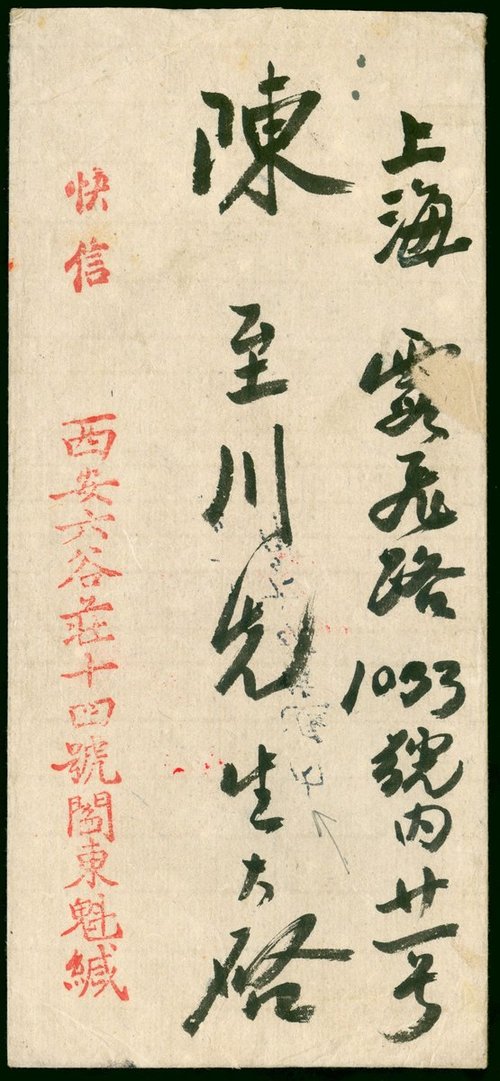 上海 霞飛路 1033號內廿一号
陳至川先生大啓
快信
西安六谷莊十四號閻東魁緘